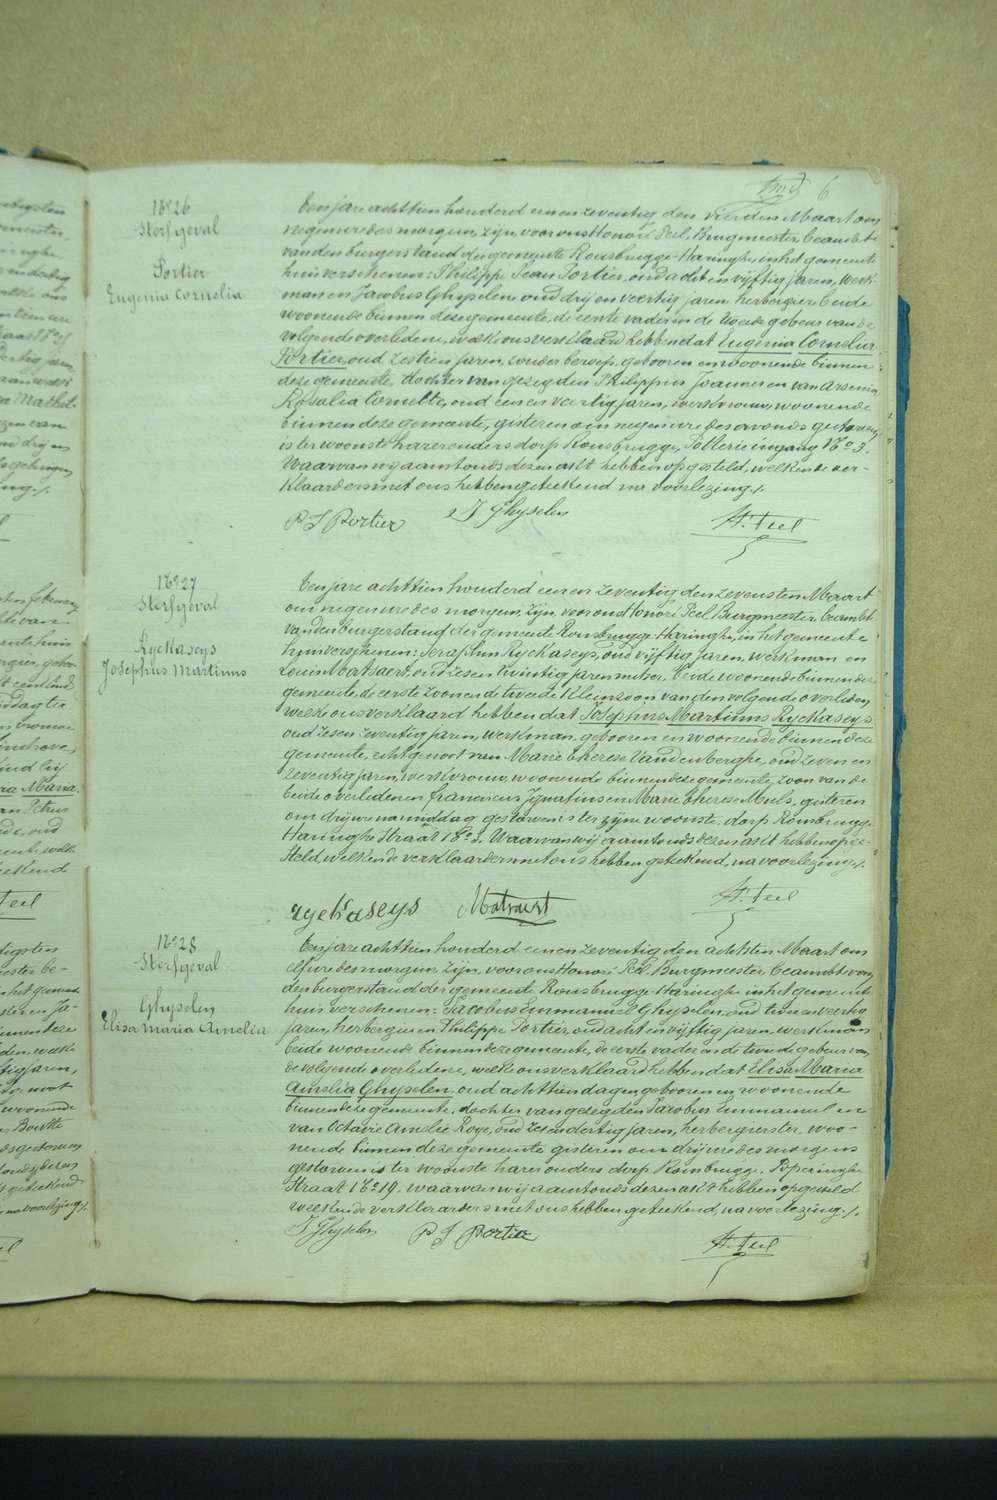 6
N° 26
Sterfgeval
Portier
Eugenia Cornelia
Ten jare achttien honderd een en zeventig den vierden Maart om
negen ure des morgens, zijn voor ons Honoré Peel, Burgmeester beambte
van den burgerstand der gemeente Rousbrugge-Haringhe in het gemeente
huis verschenen: Philippe Jean Portier, oud acht en vijftig jaren, werk-
man en Jacobus Ghyselen, oud drij en veertig jaren herbergier beide
woonende binnen deze gemeente, de eerste vader en de tweede gebuur van de
volgende overledene, welke ons verklaard hebben dat Eugenia Cornelia
Portier, oud zestien jaren, zonder beroep, geboren en woonende binnen
deze gemeente, dochter van gezegden Philippus Joannes en van Arsenia
Rosalia Cornette, oud een en veertig jaren, werkvrouw, woonende
binnen deze gemeente, gisteren om negen ure des avonds gestorven
is ter woonste harer ouders dorp Rousbrugge, Pollerie ingang N° 3.
Waarvan wij aanstonds dezen ackt hebben opgesteld, welken de ver-
klaarders met ons hebben geteekend na voorlezing ./.
P J Portier J Ghyselen H. Peel
N° 27
Sterfgeval
Ryckaseys
Josephus Martinus
Ten jare achttien honderd een en zeventig den zevensten Maart
om negen ure des morgens zijn voor ons Honoré Peel Burgmeester, beambte
van den burgerstand der gemeente Rousbrugge-Haringhe, in het gemeente
huis verschenen: Seraphin Ryckaseys, oud vijftig jaren, werkman en
Louis oud zes en twintig jaren beide woonende binnen deze
gemeente, de eerste zoon en de tweede kleinzoon van den volgende overleden
welke ons verklaard hebben dat Josephus Martinus Ryckaseys
oud zes en zeventig jaren, werkman, geboren en woonende binnen deze
gemeente, echtgenoot van Marie Therese Vandenberghe, oud zeven en
zeventig jaren, werkvrouw, woonende binnen deze gemeente, zoon van de
beide overledenen Franciscus Ignatius en Marie Therese Muls, gisteren
om drij ure namiddag gestorven is ter zijner woonste, dorp Rousbrugge
Haringhe Straat N° 3. Waarvan wij aanstonds dezen ackt hebben opge-
steld, welken de verklaarders met ons hebben geteekend, na voorlezing ./.
ryckaseys H. Peel
N° 28
Sterfgeval
Ghyselen
Elisa Maria Amelia
Ten jare achttien honderd een en zeventig den achtsten Maart om
elf ure des morgens, zijn voor ons Honoré Peel, Burgmeester beambte van
den burgerstand der gemeente Rousbrugge-Haringhe in het gemeente
huis verschenen: Jacobus Emmanuel Ghyselen, oud twee en veertig
jaren, herbergier en Philippe Portier, oud acht en vijftig jaren, werkman
beide woonende binnen deze gemeente, de eerste vader en de tweede gebuur van
de volgende overledene, welke ons verklaard hebben dat Elisa Maria
Amelia Ghyselen, oud achttien dagen geboren en woonende
binnen deze gemeente, dochter van gezegden Jacobus Emmanuel en
van Octavie Amelie Roye, oud zes en dertig jaren, herbergierster, woo-
nende binnen deze gemeente gisteren om drij ure des morgens
gestorven is ter woonste harer ouders dorp Rousbrugge, Poperinghe
Straat N° 19. waarvan wij aanstonds dezen akt hebben opgesteld
welken de verklaarders met ons hebben geteekend, na voorlezing ./.
J Ghyselen P J Portier H. Peel